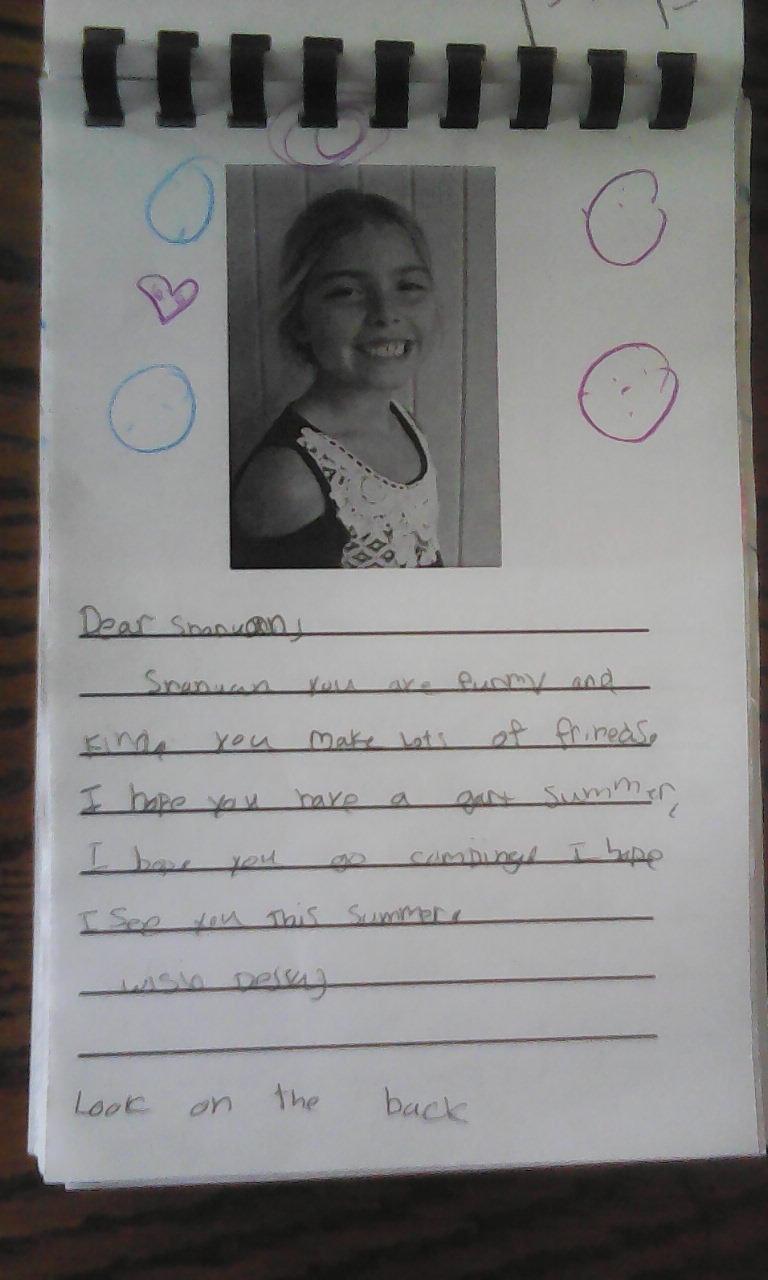 Dear
you are funny and
kind. you make lots of frineds.
I hope you have a gart summer,
I hope you go camping! I hope
I see you this summer.
wish
Look on the back